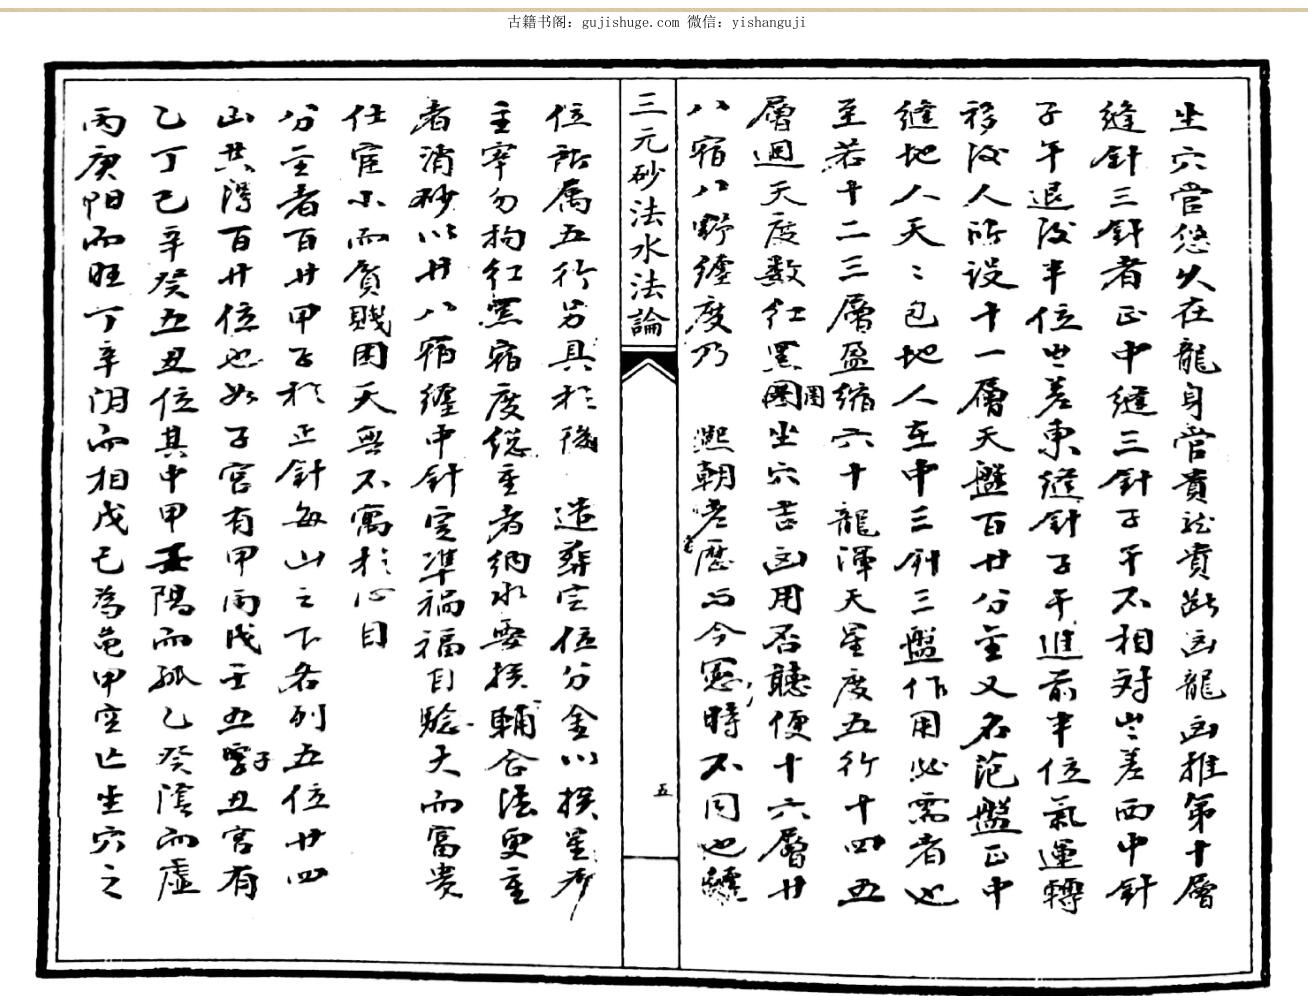 古籍书阁：gujishuge.com 微信：yishanguji
坐穴當您火在龍身當貴砂貴斷凶龍凶推第十層
縫針三針者正中縫三針子午不相對岂差西中針
子午退後半位岂差東縫針子午進前半位氣運轉
移後人所設十一層天盤百廿分金又名范盤正中
縫地人天〻包地人在中三針三盤作用必需者也
至若十二三層盈縮六十龍渾天星度五行十四五
層週天度數紅黑圈圈坐穴吉凶用否聽便十六層廿
八宿八野纏度乃 熙朝老歷与今憲時不同也
三元砂法水法論
五
位所属五行另具於後 造葬定位分金以撥星为
主宰勿拘紅黑宿度總重者納水要撥輔合法更重
者消砂以廿八宿纏中針定準禍福自驗大而富貴
仕宦小而貧賤困夭無不寓於心目
分金者百廿甲子於正針每山之下各列五位廿四
山共得百廿位也如子宮有甲丙戊壬五子丑宮有
乙丁己辛癸五丑位其中甲壬陽而孤乙癸陰而虛
丙庚阳而旺丁辛阴而相戊己為龜甲空亡坐穴之